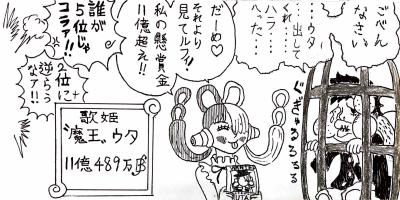 ごべん
なさい
…ウタ
…出して
くれ…
ハラ…
へった…
ぐぎゅるるるる
だーめ♥
それより
見てルフィ!
私の懸賞金
11億超え!!
誰が
5位じゃ
コラァ!!
2位に
逆らう
なァ!!
歌姫
“魔王”ウタ
11億489万฿